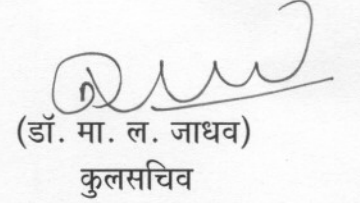 (डॉ. मा. ल. जाधव)
कुलसचिव